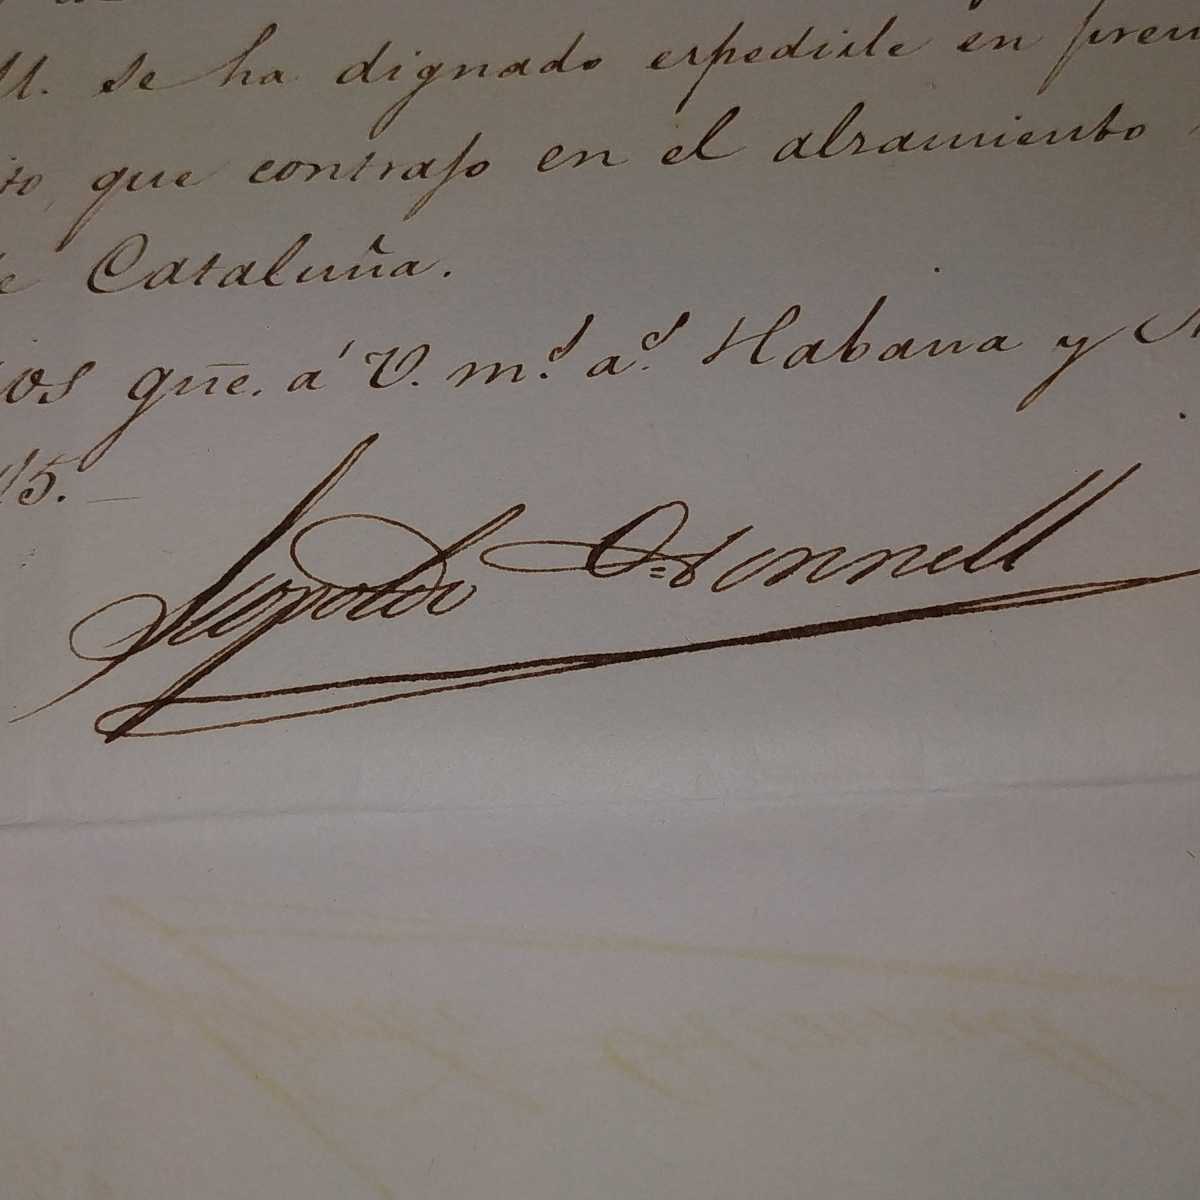 M. se ha dignado espedirle en prem
ito, que contrajo en el alzamiento
de Cataluña.
ios güe. á V. m.s a.s Habana y
45.
Leopoldo O=donnell